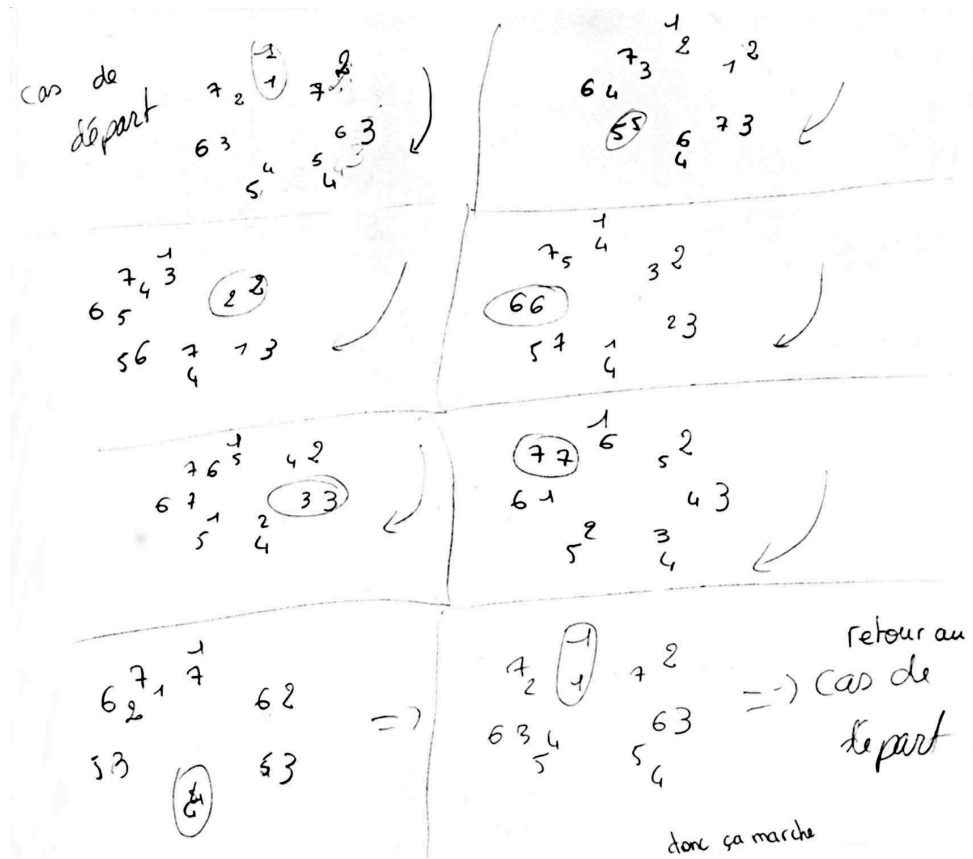 cas de
départ
1
1
7 2
7 2
6 3
6 3
5 4
5
4
1
2
7 3
1 2
6 4
5 5
7 3
6
4
1
3
7 4
2 2
6 5
5 6
7
4
1 3
1
4
7 5
3 2
6 6
2 3
5 7
1
4
1
5
7 6
4 2
6 7
3 3
5 1
2
4
1
6
7 7
5 2
6 1
4 3
5 2
3
4
1
7
7 1
6 2
6 2
5 3
5 3
4
=>
1
1
7 2
7 2
6 3
6 3
4
5
5
4
=> retour au
cas de
départ
donc ça marche